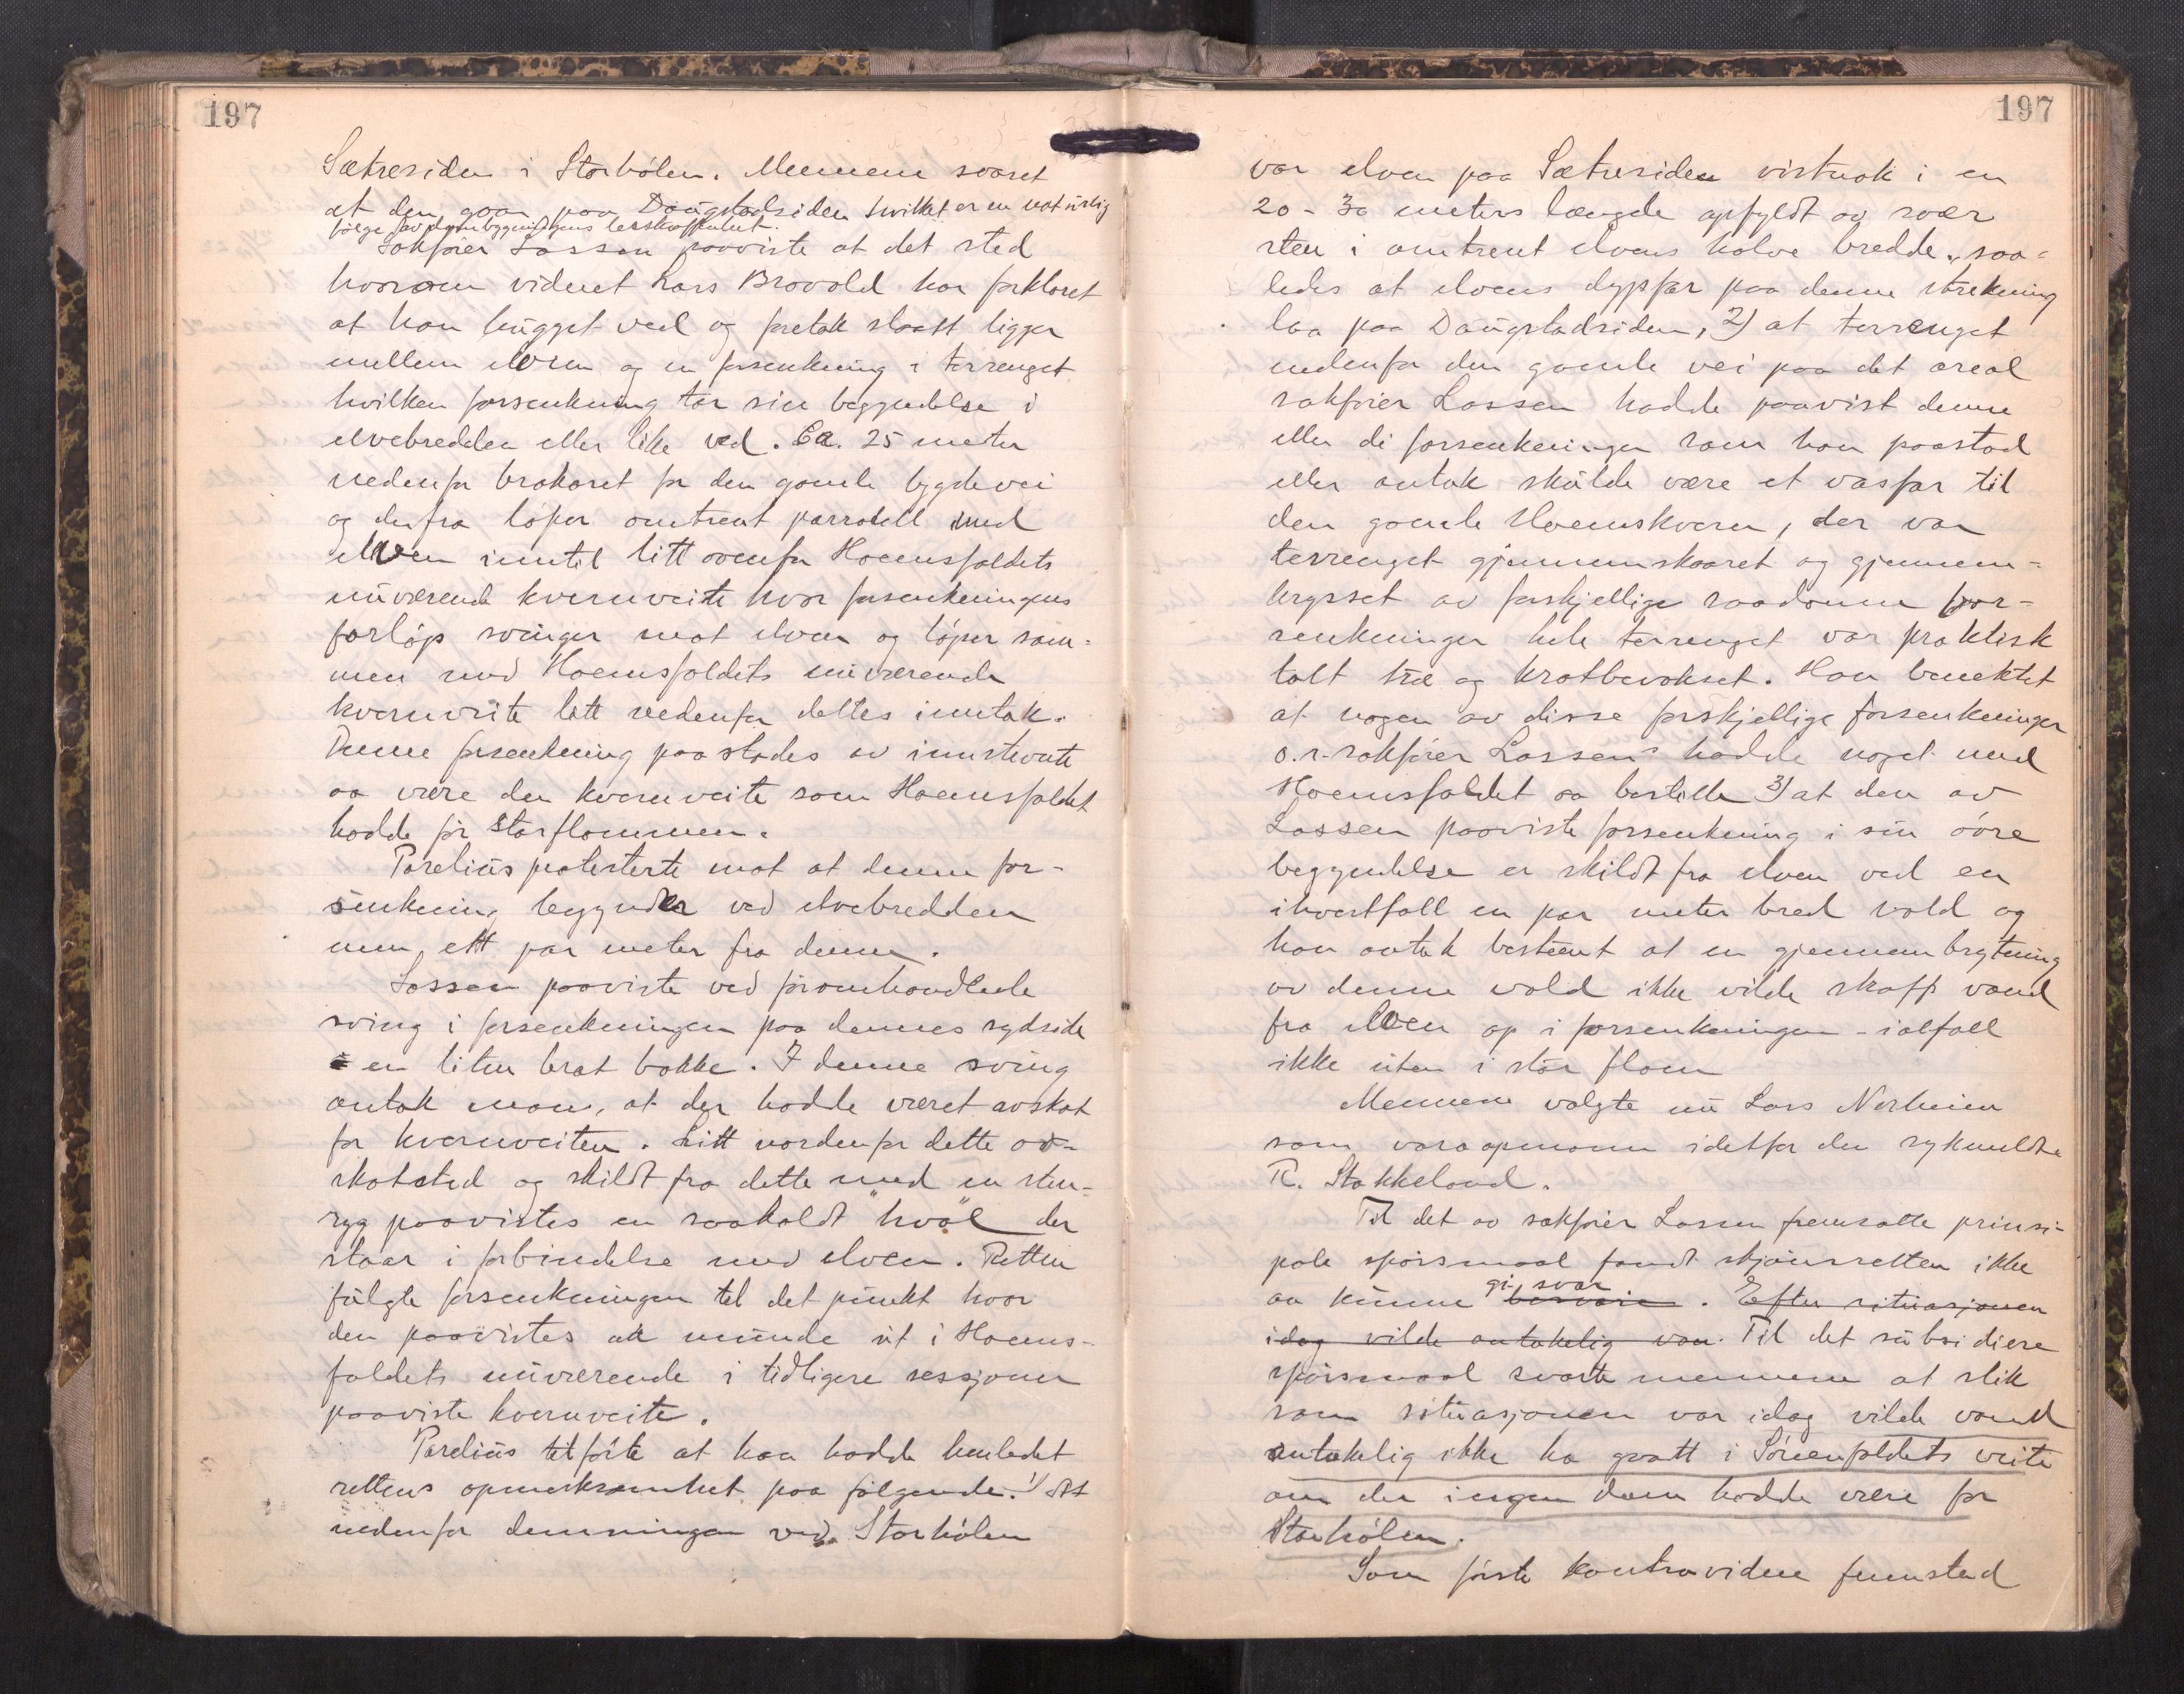 197
Sætresiden i Storhølen. Mennene svaret
at den gaar paa Daugstadsiden hvilket er en naturlig
følge av dambygningens beskaffenhet.
Sakfører Lassen paaviste at det sted
hvorom vidnet Lars Bravold har forklaret
at han hugget ved og foretok slaatt ligger
mellem elven og en forsenkning i terrenget
hvilken forsenkning tar sin begyndelse i
elvebredden eller like ved. Ca. 25 meter
nedenfor brokaret for den gamle bygdevei
og derfra løper omtrent parralell med
elven inntil litt ovenfor Hoemsfaldets
nuværende kvernveite hvor forsenkningens
forløp svinger mot elven og løper sam-
men med Hoemsfaldets nuværende
kvernveite litt nedenfor dettes inntak.
Denne forsenkning paastodes av innstevnte
aa være den kvernveite som Hoemsfaldet
hadde før Storflommen.
Parelius protesterte mot at denne for-
senkning begynder ved elvebredden
men ett par meter fra denne.
Lassen paaviste ved føromhandlede
sving i forsenkningen paa dennes sydside
en liten brat bakke. I denne sving
antok man, at der hadde været avskot
for kvernveiten. Litt nordenfor dette av-
skotsted og skildt fra dette med en sten-
ryg paavistes en saakaldt "hvål" der
staar i forbindelse med elven. Retten
fulgte forsenkningen til det punkt hvor
den paavistes at munde ut i Hoems-
faldets nuværende i tidligere sessjoner
paaviste kvernveite.
Parelius tilførte at han hadde henledet
rettens opmerksomhet paa følgende: 1) At
nedenfor demningen ved Storhølen
197
var elven paa Sætresiden vistnok i en
20 - 30 meters længde opfyldt av svær
sten i omtrent elvens halve bredde, saa-
ledes at elvens dypfar paa denne strekning
laa paa Daugstadsiden, 2) at terrenget
nedenfor den gamle vei paa det areal
sakfører Lassen hadde paavist denne
eller de forsenkninger som han paastod
eller antok skulde være et vasfar til
den gamle Hoemskvern, der var
terrenget gjennemskaaret og gjennem-
krysset av forskjellige saadanne for-
senkninger hele terrenget var praktisk
talt træ og kratbevokset. Han benektet
at nogen av disse forskjellige forsenkninger
o.r.sakfører Lassens hadde noget med
Hoemsfaldet aa bestille 3) at den av
Lassen paaviste forsenkning i sin øvre
begyndelse er skildt fra elven ved en
ihvertfall en par meter bred vold og
han antok bestemt at en gjennembrytning
av denne vold ikke vilde skaffe vand
fra elven op i forsenkningen - ialfall
ikke uten i stor flom
Mennene valgte nu Lars Nerheim
som varaopmann idetfor den sykmeldte
R. Stakkeland.
Til det av sakfører Lassen fremsatte prinsi-
pale spørsmaal fandt skjønsretten ikke
aa kunne gi svar besvare. Efter situasjonen
idag vilde antakelig van. Til det subsidiere
spørsmaal svarte mennene at slik
som situasjonen var idag vilde vand
antakelig ikke ha gaatt i Sørenfaldets veite
om der ingen dam hadde være for
Storhølen.
Som første kontravidne fremstod